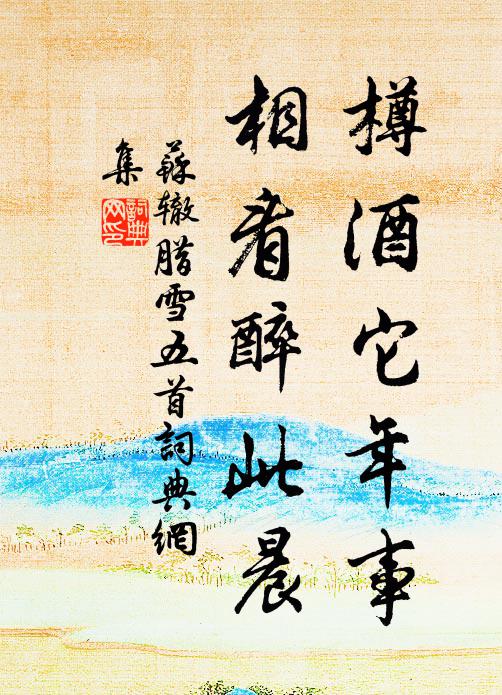 樽酒它年事
相看醉此晨
蘇辙腊雪五首詞典網
集
詞典网印